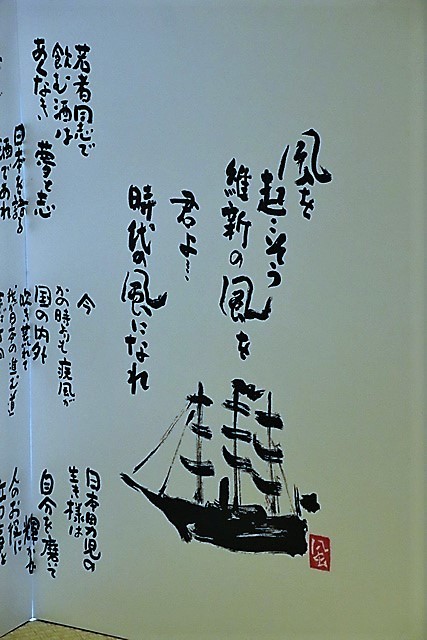 風を
起こそう
維新の風を
君よ…
時代の風になれ
若者同志で
飲む酒は
あくなき 夢と志
日本を語る
酒であれ
今
かの時よりも疾風が
国の内外
吹き荒れて
日本男児の
生き様は
自分を磨いて
輝かす
人のお役に
風